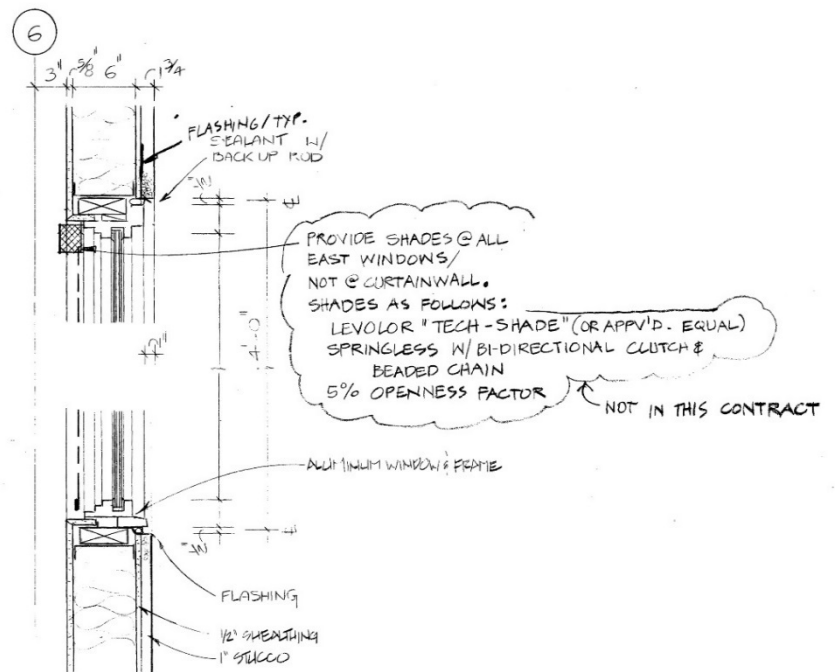 6
3" 5/8" 6" 1 3/4
FLASHING/TYP.
SEALANT W/
BACK UP ROD
1/2"
PROVIDE SHADES @ ALL
EAST WINDOWS/
NOT @ CURTAINWALL.
SHADES AS FOLLOWS:
LEVOLOR "TECH-SHADE" (OR APPV'D. EQUAL)
SPRINGLESS W/ BI-DIRECTIONAL CLUTCH &
BEADED CHAIN
5% OPENNESS FACTOR
NOT IN THIS CONTRACT
4'-0"
ALUMINUM WINDOW & FRAME
1/2"
FLASHING
1/2" SHEALTHING
1" STUCCO